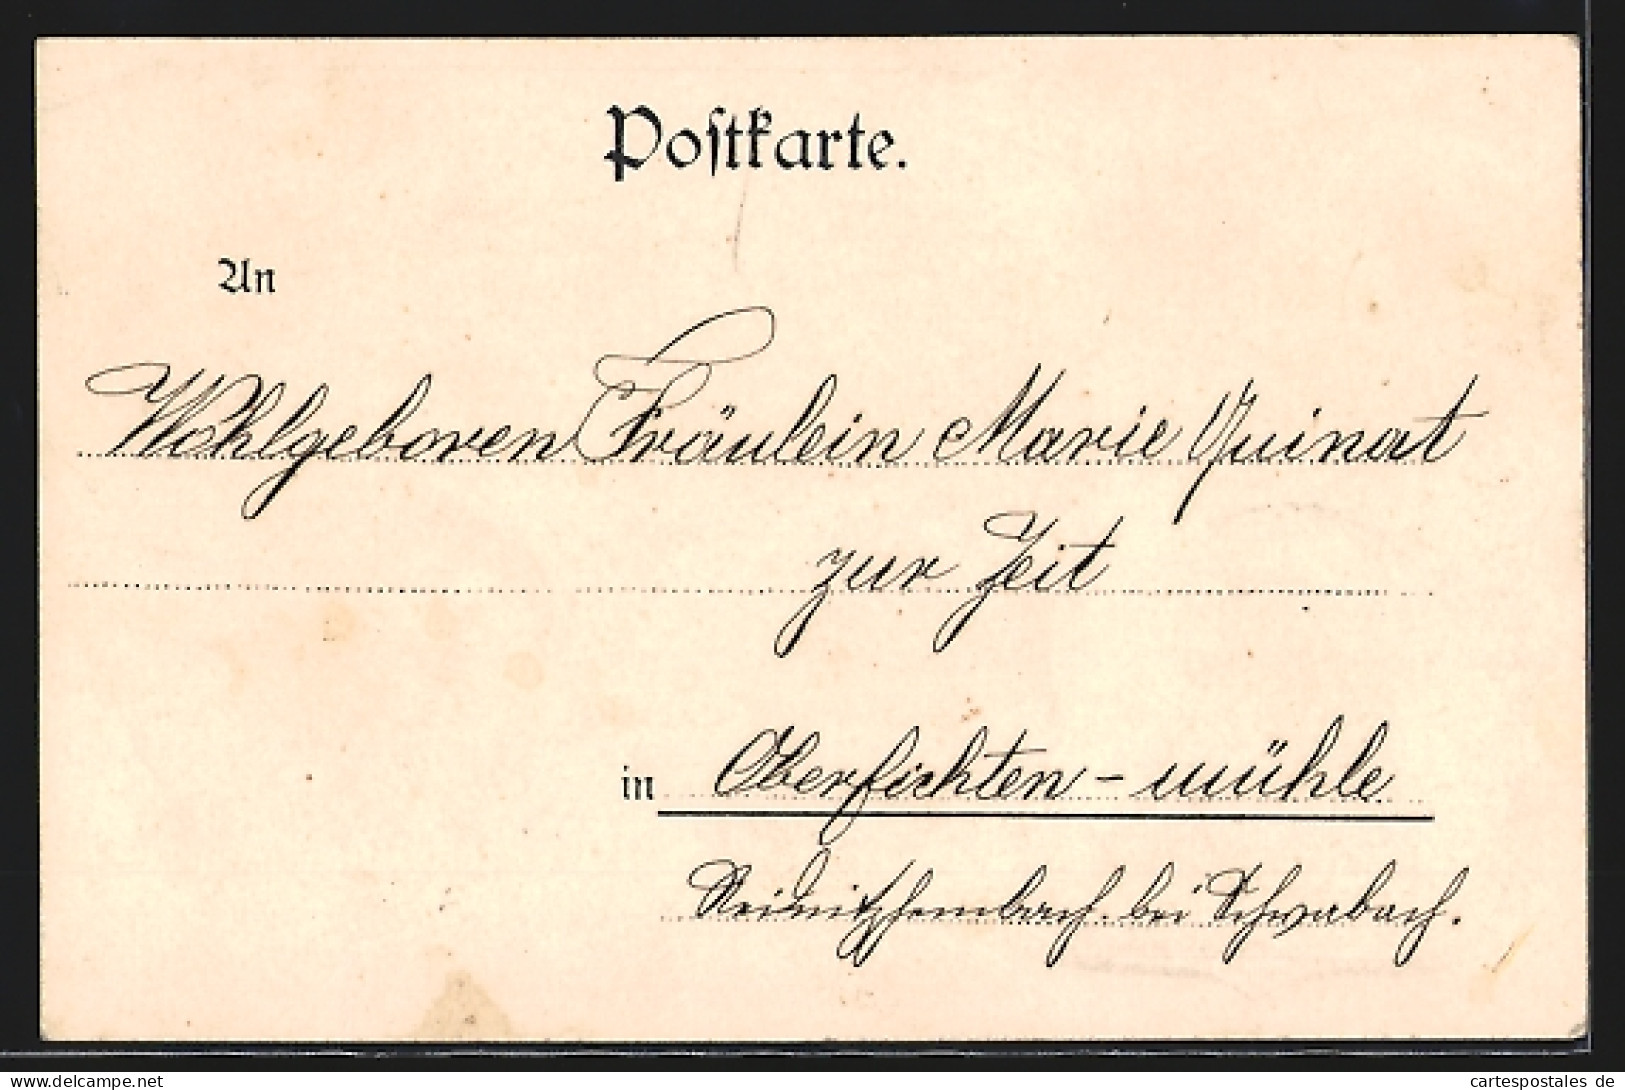 Postkarte.
An
Wohlgeboren Fräulein Marie Quinat
zur Zeit
in Oberfichten-mühle
bei Schwabach.
www.delcampe.net
cartespostales de